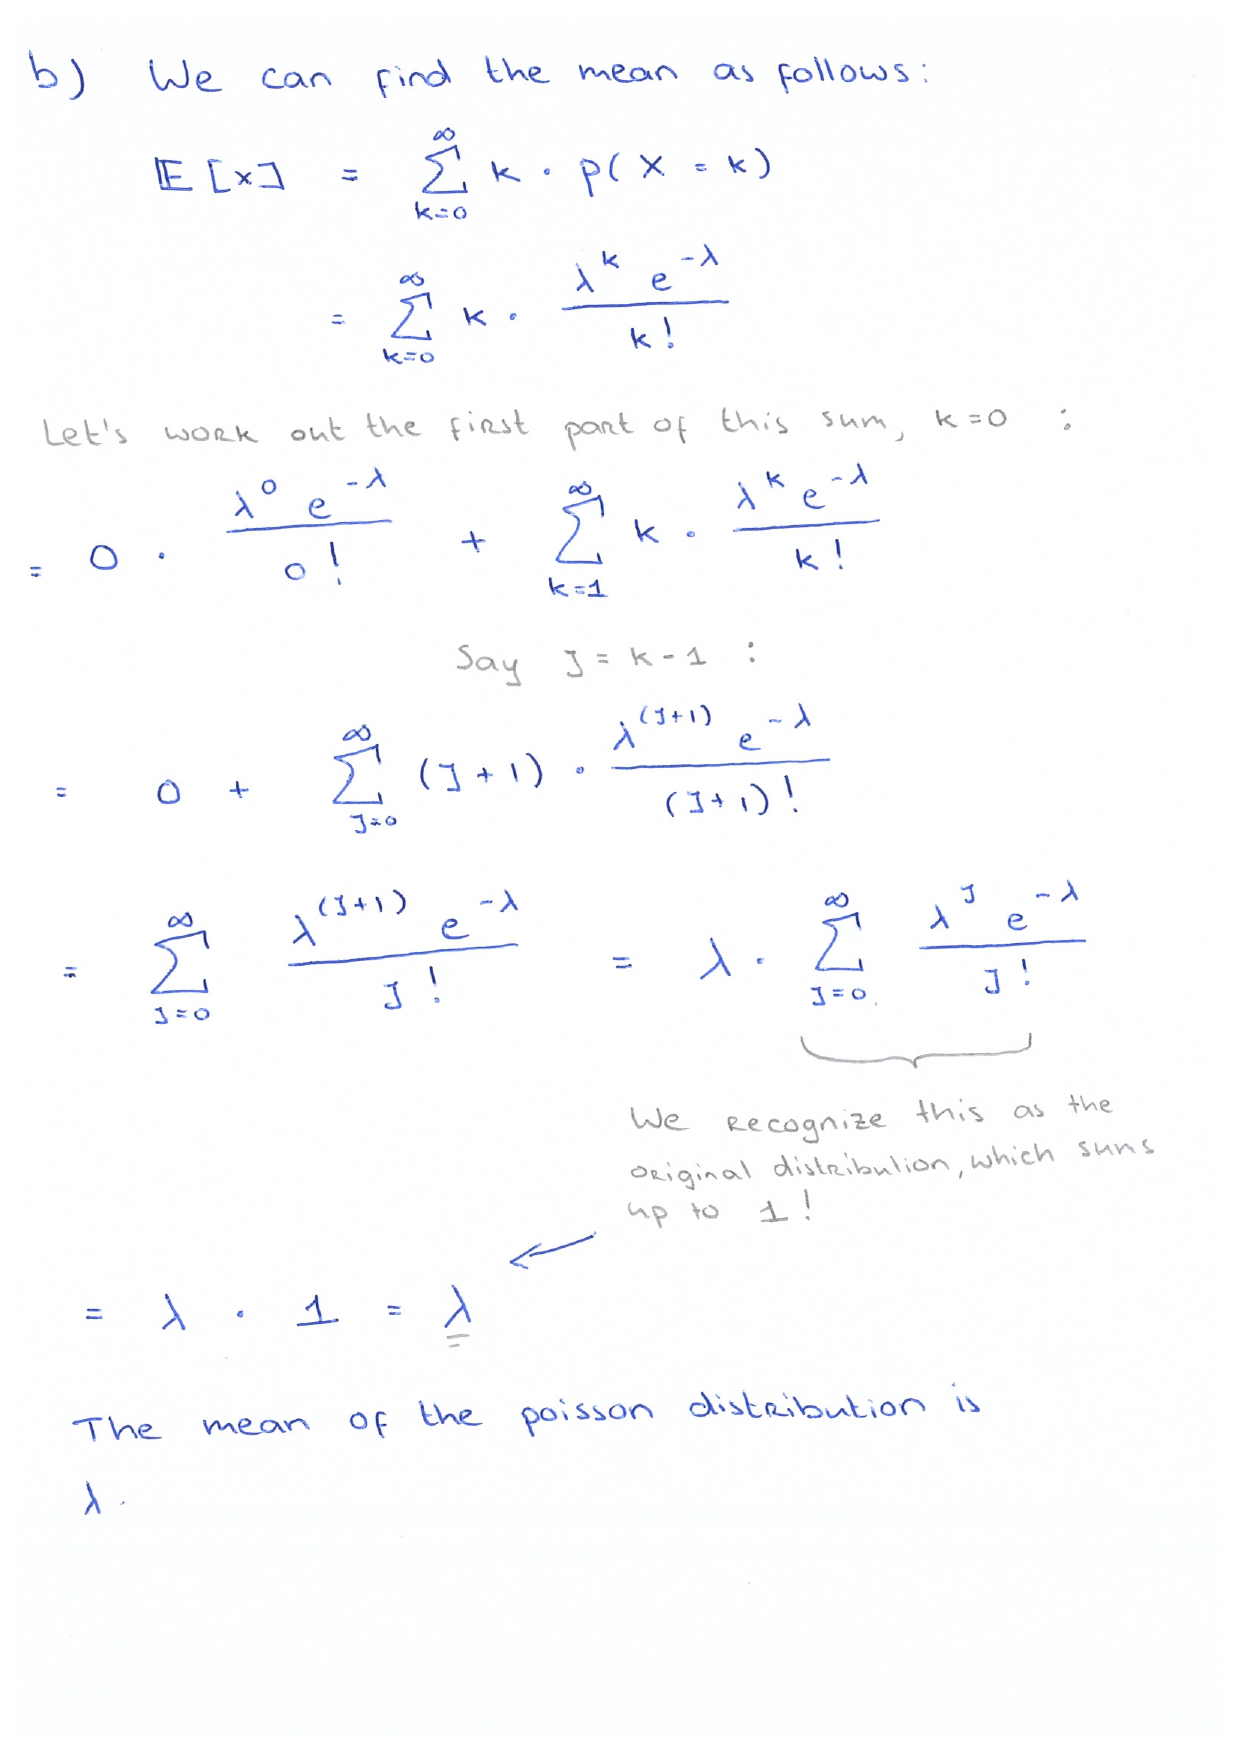 b) We can find the mean as follows:
𝔼[x] = ∑_{k=0}^{∞} k · p(X = k)
= ∑_{k=0}^{∞} k · \frac{λ^k e^{-λ}}{k!}
Let's work out the first part of this sum, k=0 :
= 0 · \frac{λ^0 e^{-λ}}{0!} + ∑_{k=1}^{∞} k · \frac{λ^k e^{-λ}}{k!}
Say J = k - 1 :
= 0 + ∑_{J=0}^{∞} (J+1) · \frac{λ^{(J+1)} e^{-λ}}{(J+1)!}
= ∑_{J=0}^{∞} \frac{λ^{(J+1)} e^{-λ}}{J!} = λ · ∑_{J=0}^{∞} \frac{λ^J e^{-λ}}{J!}
We recognize this as the
original distribution, which sums
up to 1!
= λ · 1 = λ
The mean of the poisson distribution is
λ.